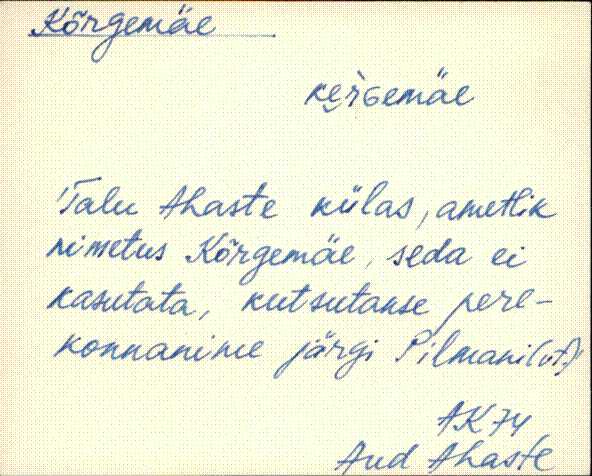 Kõrgemäe
ke̮rGemäe
Talu Ahaste külas, ametlik
nimetus Kõrgemäe, seda ei
kasutata, kutsutakse pere-
konnanime järgi Pilmani
AK 74
Aud Ahaste